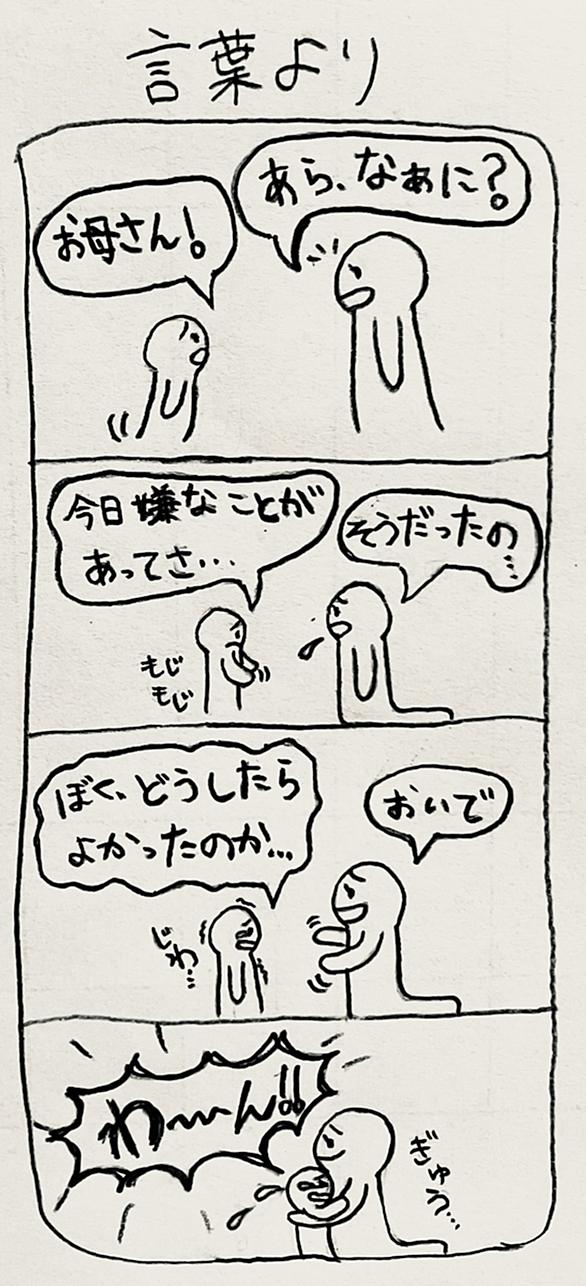 言葉より
お母さん!
あら、なぁに?
今日嫌なことが
あってさ…
そうだったの…
もじ
もじ
ぼく、どうしたら
よかったのか…
おいで
じわ…
わ〜〜ん!!
ぎゅう…